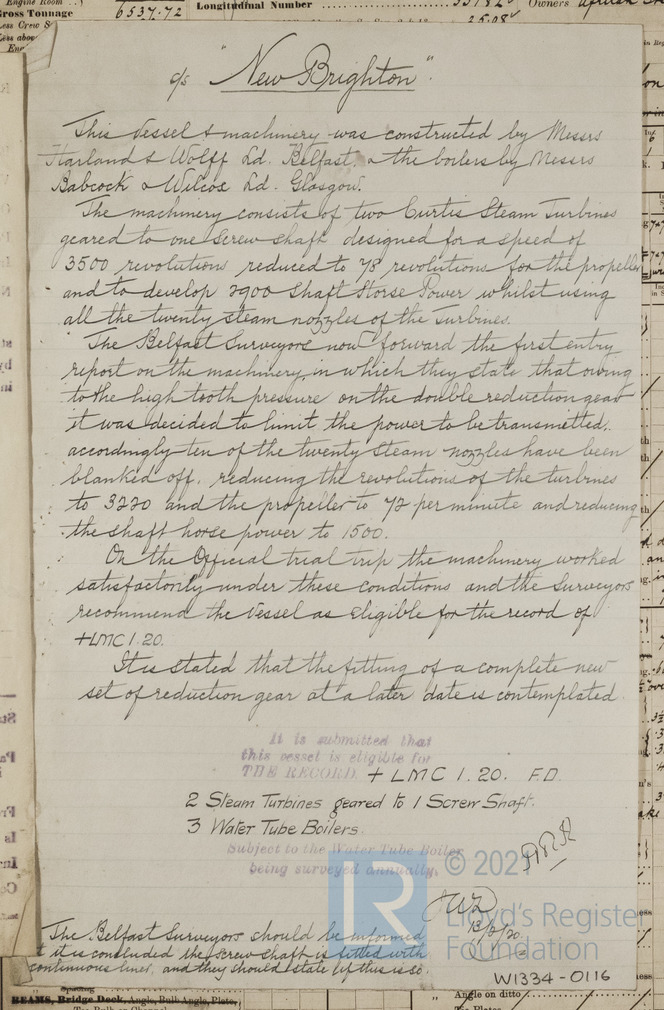 Engine Room
Gross Tonnage
6537.72
Longitudinal Number
25.08
Owners
Less Crew
Less above
S/S "New Brighton".
This vessel & machinery was constructed by Messrs
Harland & Wolff Ld. Belfast, & the boilers by Messrs
Babcock & Wilcox Ld. Glasgow.
The machinery consists of two Curtis Steam Turbines
geared to one screw shaft designed for a speed of
3500 revolutions reduced to 78 revolutions for the propeller
and to develop 2900 Shaft Horse Power whilst using
all the twenty steam nozzles of the turbines.
The Belfast Surveyors now forward the first entry
report on the machinery in which they state that owing
to the high tooth pressure on the double reduction gear
it was decided to limit the power to be transmitted,
accordingly ten of the twenty steam nozzles have been
blanked off, reducing the revolutions of the turbines
to 3220 and the propeller to 72 per minute and reducing
the shaft horse power to 1500.
On the Official trial trip the machinery worked
satisfactorily under these conditions and the Surveyors
recommend the Vessel as eligible for the record of
+LMC 1.20.
It is stated that the fitting of a complete new
set of reduction gear at a later date is contemplated.
It is submitted that
this vessel is eligible for
THE RECORD. + LMC 1.20. F.D.
2 Steam Turbines geared to 1 Screw Shaft.
3 Water Tube Boilers.
Subject to the Water Tube Boiler
being surveyed annually.
© 2021
LR
Lloyd's Register
Foundation
The Belfast Surveyors should be informed
it is concluded the screw shaft is fitted with
continuous liner, and they should state if this is so.
W1334-0116
BEAMS, Bridge Deck, Angle, Bulb Angle, Plate,
Angle on ditto